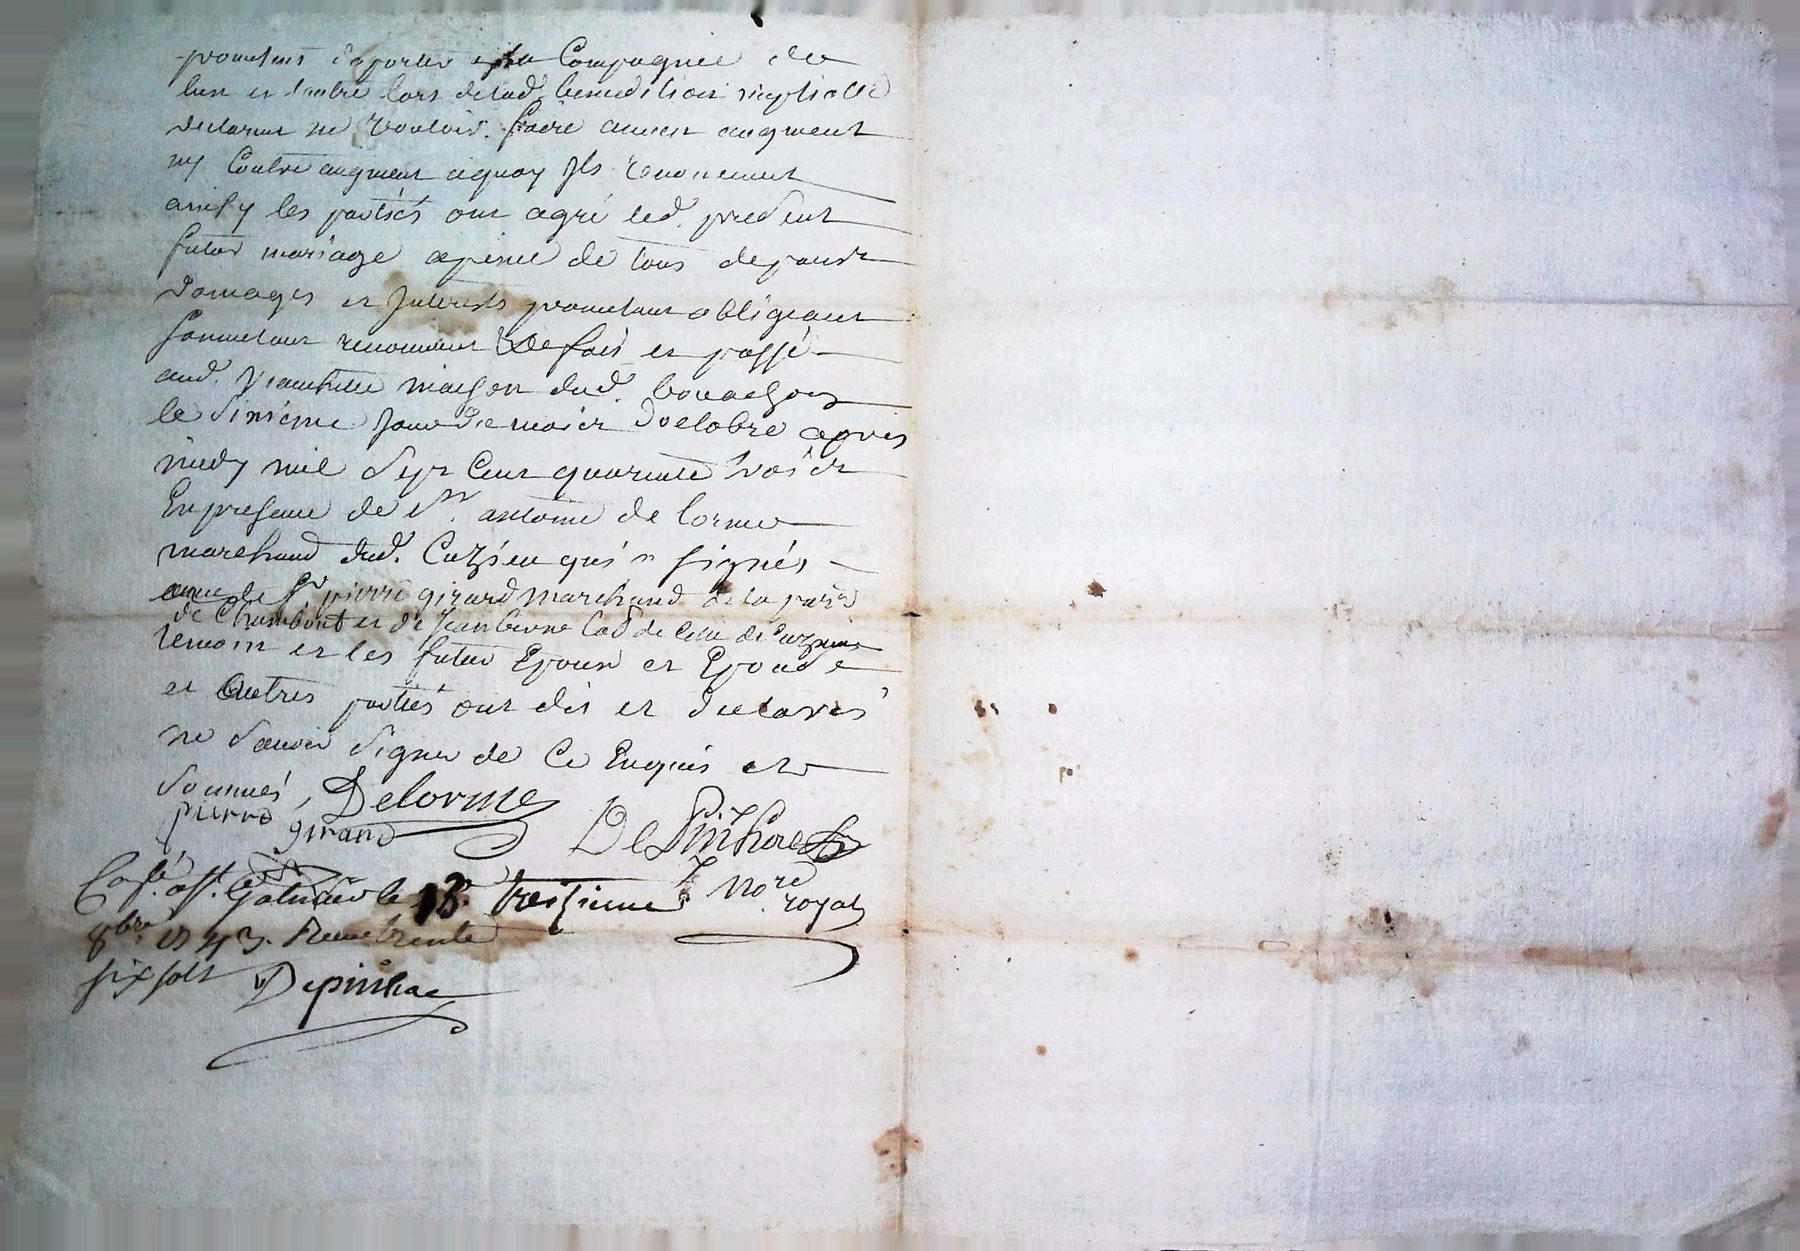 prometans d'aporter a la Compagnie de
lun et lautre lors de lad. benediction nuptialle
declarant ne vouloir faire aucun augment
ny Contre augment a quoy Ils renoncent
ainsy les parties ont agré led. present
futur mariage a peine de tous depans
domages et Interests prometant obligeant
soumetant renonceant De fait et passé
aud. maison dud.
le sixieme Jour de mois doctobre apres
midy mil sept Cent quarente trois
En presence de Sr. antoine de lorme
marchand dud. Cuzieu qui a signés
avec le Sr pierre girard marchand de la parse
de Chambout et de Jean de celle de
temoin et les futur Epoux et Epouse
et autres parties ont dit et declarés
ne scavoir signer de Ce Enquis et
sommés, Delorme
pierre girard DePinhac
nore royal
Colé. aSt. Galmier le 13e. treizieme
8bre 1743. Receu trente
six sols Depinhac